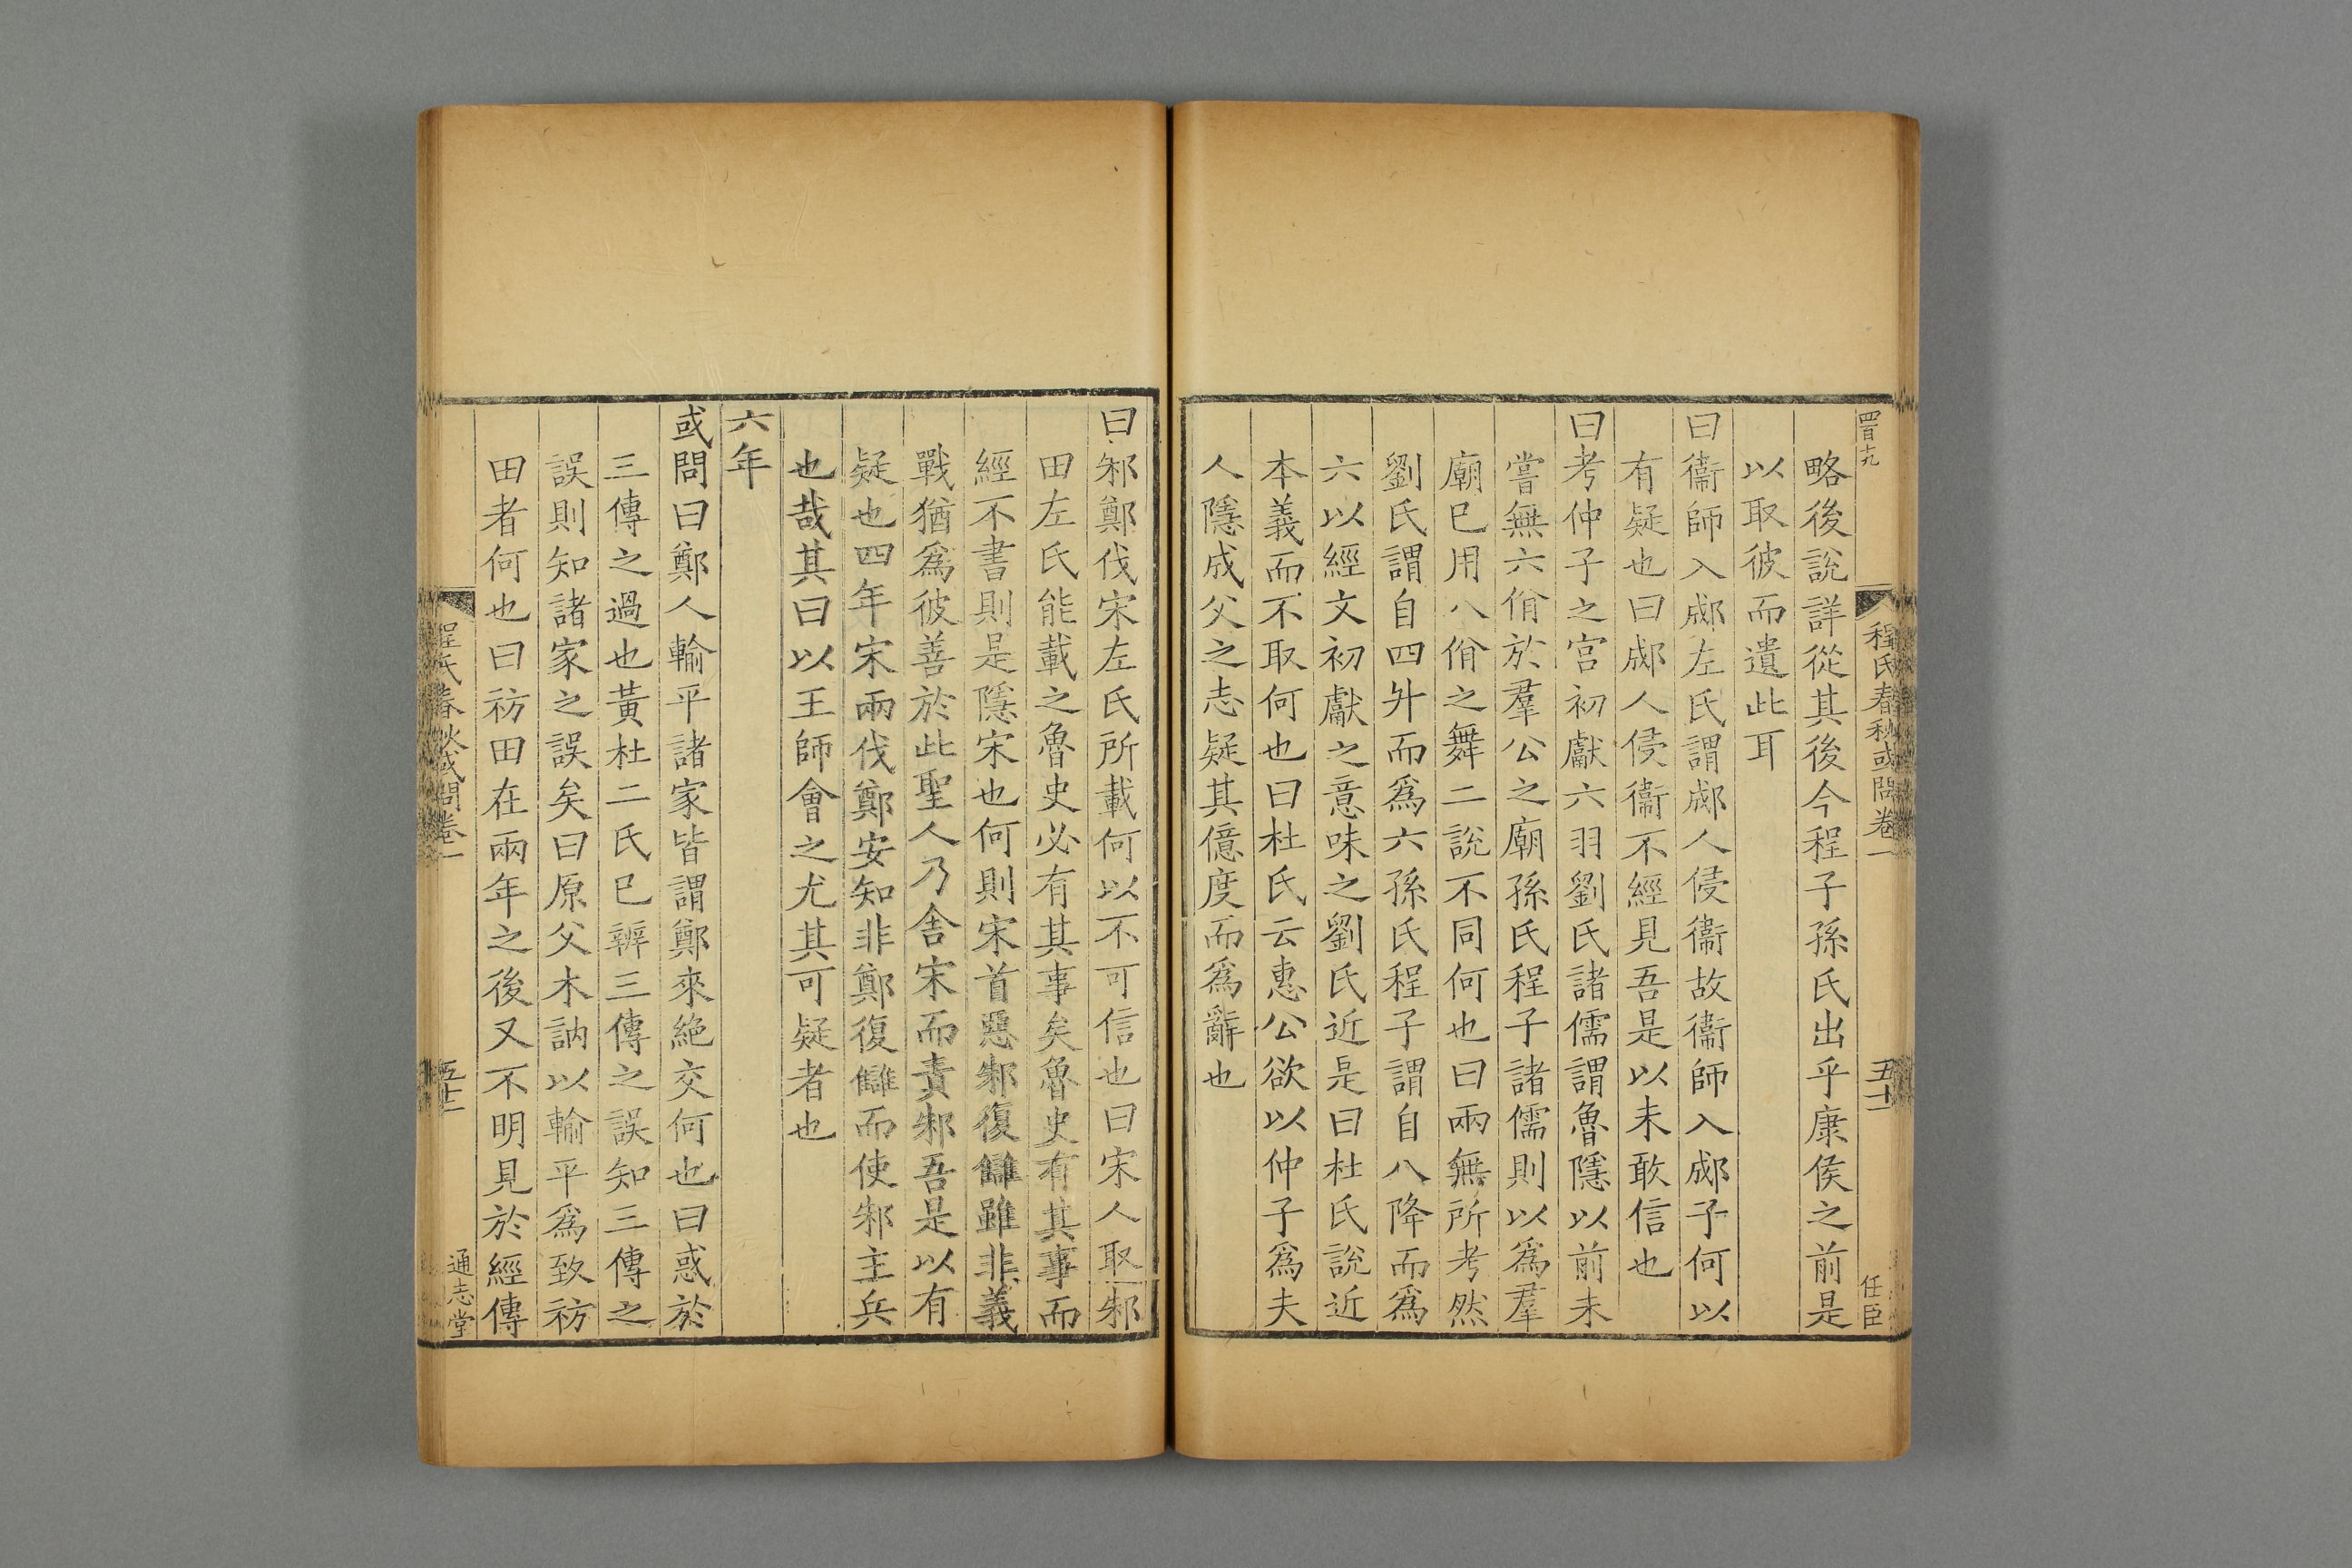 程氏春秋或問卷一
五十二
任臣
略後說詳從其後今程子孫氏出乎康侯之前是
以取彼而遺此耳
曰衞師入郕左氏謂郕人侵衞故衞師入郕子何以
有疑也曰郕人侵衞不經見吾是以未敢信也
曰考仲子之宮初獻六羽劉氏諸儒謂魯隱以前未
嘗無六佾於羣公之廟孫氏程子諸儒則以爲羣
廟已用八佾之舞二說不同何也曰兩無所考然
劉氏謂自四升而爲六孫氏程子謂自八降而爲
六以經文初獻之意味之劉氏近是曰杜氏說近
本義而不取何也曰杜氏云惠公欲以仲子爲夫
人隱成父之志疑其億度而爲辭也
曰邾鄭伐宋左氏所載何以不可信也曰宋人取邾
田左氏能載之魯史必有其事矣魯史有其事而
經不書則是隱宋也何則宋首惡邾復讎雖非義
戰猶爲彼善於此聖人乃舍宋而責邾吾是以有
疑也四年宋兩伐鄭安知非鄭復讎而使邾主兵
也哉其曰以王師會之尤其可疑者也
六年
或問曰鄭人輸平諸家皆謂鄭來絕交何也曰惑於
三傳之過也黃杜二氏已辨三傳之誤知三傳之
誤則知諸家之誤矣曰原父木訥以輸平爲致祊
田者何也曰祊田在兩年之後又不明見於經傳
程氏春秋或問卷一
通志堂